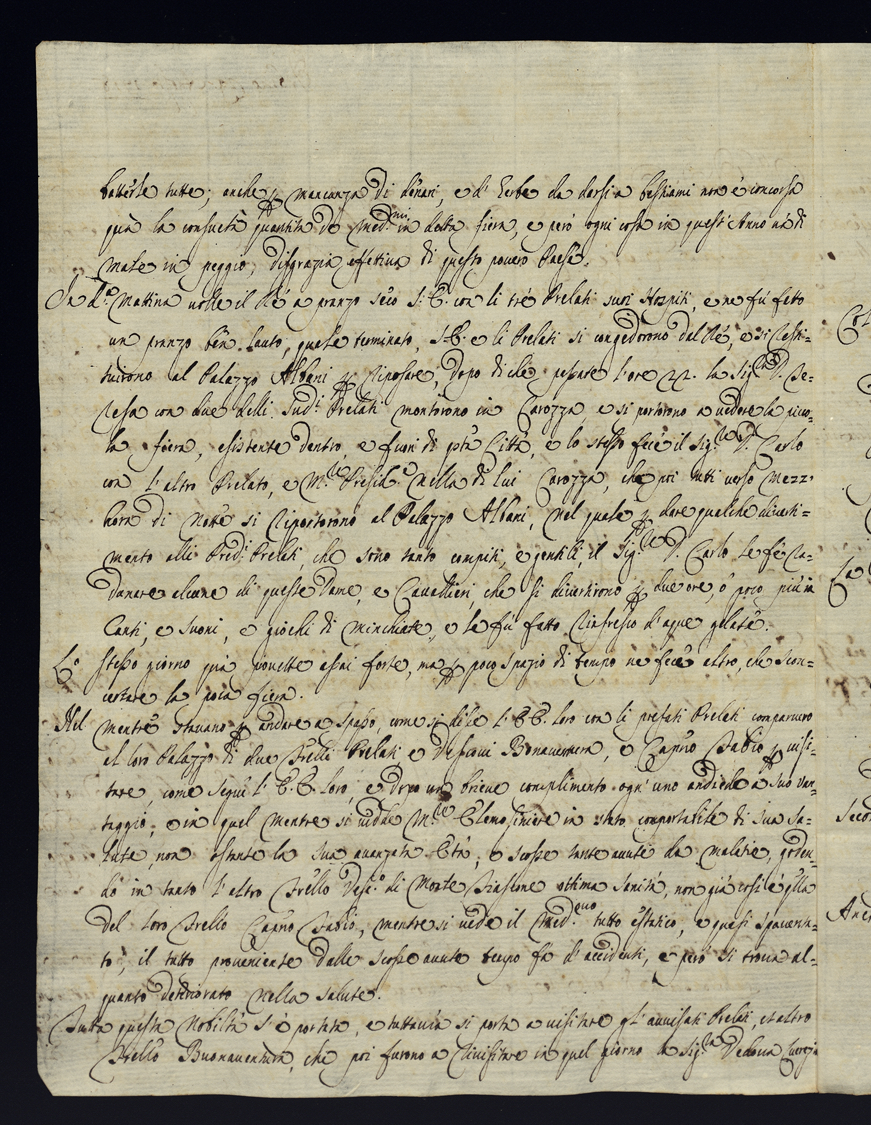 tutte; anche p mancanza di denari, e d'Erbe da darsi a bestiami non è concorsa
quà la consueta quantità de Med.mi in detta fiera, e però ogni cosa in quest'Anno và di
male in peggio, disgrazia effettiva di questo povero Paese.
In d.a Mattina volle il Ré a pranzo seco S. E. con li tré Prelati suoi Hospiti, e ne fù fatto
un pranzo ben lauto, quale terminato, S. E. e li Prelati si congedorono dal Ré, e si resti=
tuirono al Palazzo Albani p riposare, dopo di che passate l'ore 22. la Sig.ra D. Te=
resa con due delli Sud.i Prelati montorono in Carozza, e si portorono a vedere la pico=
la fiera, esistente dentro, e fuori di pta Città, e lo stesso fece il Sig.re D. Carlo
con l'altro Prelato, e M.re Presid.e nella di lui Carozza, che poi tutti verso mezz'
hora di Notte si riportorono al Palazzo Albani, nel quale p dare qualche diverti=
mento alli Pred.i Prelati, che sono tanto compiti, e gentili, il Sig.re D. Carlo le fè ra=
dunare alcune di queste Dame, e Cavallieri, che si divertirono p due ore, ò poco più in
Canti, e Suoni, e giochi di Minchiate, e le fù fatto rinfresco d'aque gelate.
L.o stesso giorno quà piovette assai forte, ma p poco spazio di tempo ne fece altro, che scon=
certare la poca fiera.
Nel mentre stavano p andare a spasso, come si disse l'EE. loro con li prefati Prelati comparvero
al loro Palazzo li due Frelli Prelati e Vescovi Bonaventura, e Capno Fabio p visi=
tare, come seguì l'E. E. loro, e dopo un brieve complimento ogn'uno andiede a suo van=
taggio, e in quel mentre si vidde M.re Elemosiniere in stato comportabile di sua sa=
lute, non ostante la sua avanzata Età, e scosse tante avute da malatie, goden=
do in tanto l'altro Frello Vesc.o di Monte Fiascone ottima sanità, non già così è qlla
del loro Frello Capno Fabio, mentre si vede il Med.mo tutto estatico, e quasi spaventa=
to, il tutto proveniente dalle scosse avute tempo fà d'accidenti, e però si trova al=
quanto deteriorato nella salute.
Tutta questa Nobiltà s'è portata, e tuttavia si porta a visitare gl'avvisati Prelati, et altro
Frello Buonaventura, che poi furono a rivisitare in quel giorno la Sig.ra Vedova